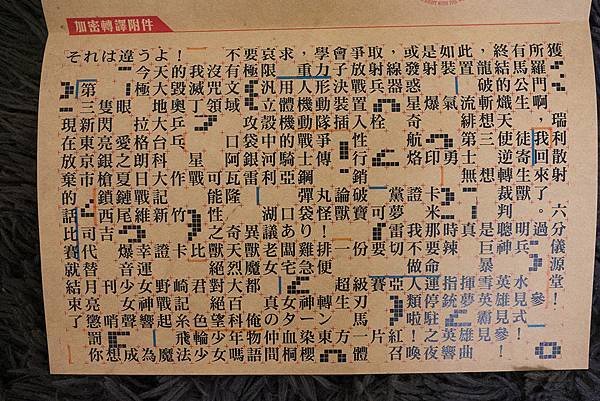 加密轉譯附件
獲 瑞利散射 六分儀源堂！
所羅門啊，我回來了。過 參
有馬公生 徒寄生獸 明兵 水見式！
終結的熾天使逆轉裁判 聰神 英雄見參！
，龍破斬想三 想 是巨暴雪英霸見
此置 流緋第士無 真 揮夢 雄曲
如裝 氣 勇 時辣 指銃 英響
是射 爆 印 卡米那要命運停駐之夜
或發惑星奇航烙 證 我不做人類啦！喚
線器 黨夢雷切 亞 紅召
取射兵 栓 可 要 賽 片
爭放戰置入性行銷破寶 份 級刃馬一體
會子決裝插！論獸 超生 方
學力形動隊爭傳 丸怪！排便 轉 東
，重人機動戰士鋼彈袋り雞急 神一染櫻
求 用體機的騎亞 口あ闆宅 女夕血桐
哀限汎立殼中河利 湖議老女 真の仲間
要極 攻袋銀雷 異獸魔都 俺物語
不有文域 口阿瓦隆 奇天烈大百科年嗎
沒咒領 可能性之獸絕對絕望少女
我滅丁 星戰 比 君 色輪少
！的毀奧乒乓 作竹 卡 崎記糸飛法
よ天大地大台科大記新 證 野戰起 魔
う今極 拉格朗日戰維 幸運女神響 為
違 眼 愛之夏鏈尾 爆音少女聲 成
は 隻閃亮銀槍鎖西吉 刊 哨 想
れ 第三新東京市 司代替月亮懲罰你
そ 現在放棄的話比賽就結束了